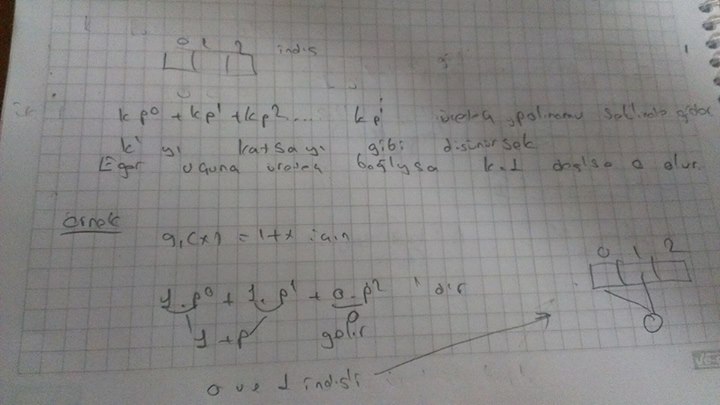 0 1 2 indis
kp⁰ + kp¹ + kp² .... kpⁱ üreteç polinomu şeklinde gider
k' yı katsayı gibi düşünürsek
Eğer ucuna üretec bağlıysa k=1 değilse 0 olur.
örnek
g₁(x) = 1+x için
0 1 2
1.p⁰ + 1.p¹ + 0.p² 'dir
1+p 0 gelir
0 ve 1 indisli